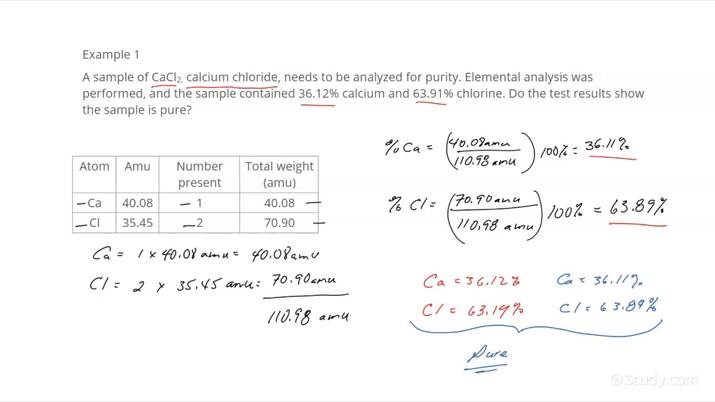 Example 1
A sample of CaCl₂, calcium chloride, needs to be analyzed for purity. Elemental analysis was
performed, and the sample contained 36.12% calcium and 63.91% chlorine. Do the test results show
the sample is pure?
% Ca = (40.08 amu / 110.98 amu) 100% = 36.11%
Atom Amu Number present Total weight (amu)
Ca 40.08 1 40.08
Cl 35.45 2 70.90
% Cl = (70.90 amu / 110.98 amu) 100% = 63.89%
Ca = 1 x 40.08 amu = 40.08 amu
Cl = 2 x 35.45 amu = 70.90 amu
110.98 amu
Ca = 36.12% Ca = 36.11%
Cl = 63.19% Cl = 63.89%
Pure
©Study.com